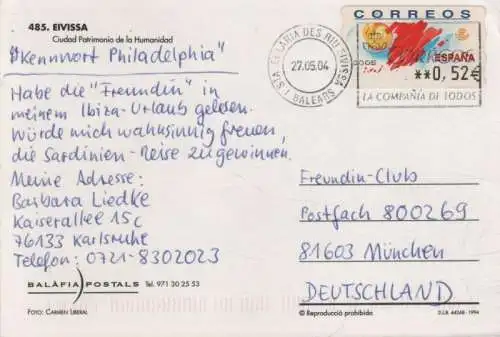 485. EIVISSA
Ciudad Patrimonio de la Humanidad
"Kennwort Philadelphia"
Habe die "Freundin" in
meinem Ibiza-Urlaub gelesen.
Würde mich wahnsinnig freuen,
die Sardinien-Reise zu gewinnen.
Meine Adresse:
Barbara Liedke
Kaiserallee 15c
76133 Karlsruhe
Telefon: 0721-8302023
BALÀFIA POSTALS Tel. 971 30 25 53
FOTO: CARMEN LIBERAL
EULARIA DES RIU EIVISSA
27.05.04
BALEARS
CORREOS
ESPAÑA
**0,52€
LA COMPAÑIA DE TODOS
Freundin-Club
Postfach 800269
81603 München
DEUTSCHLAND
© Reproducció prohibida
D.L.B. 44248 - 1994